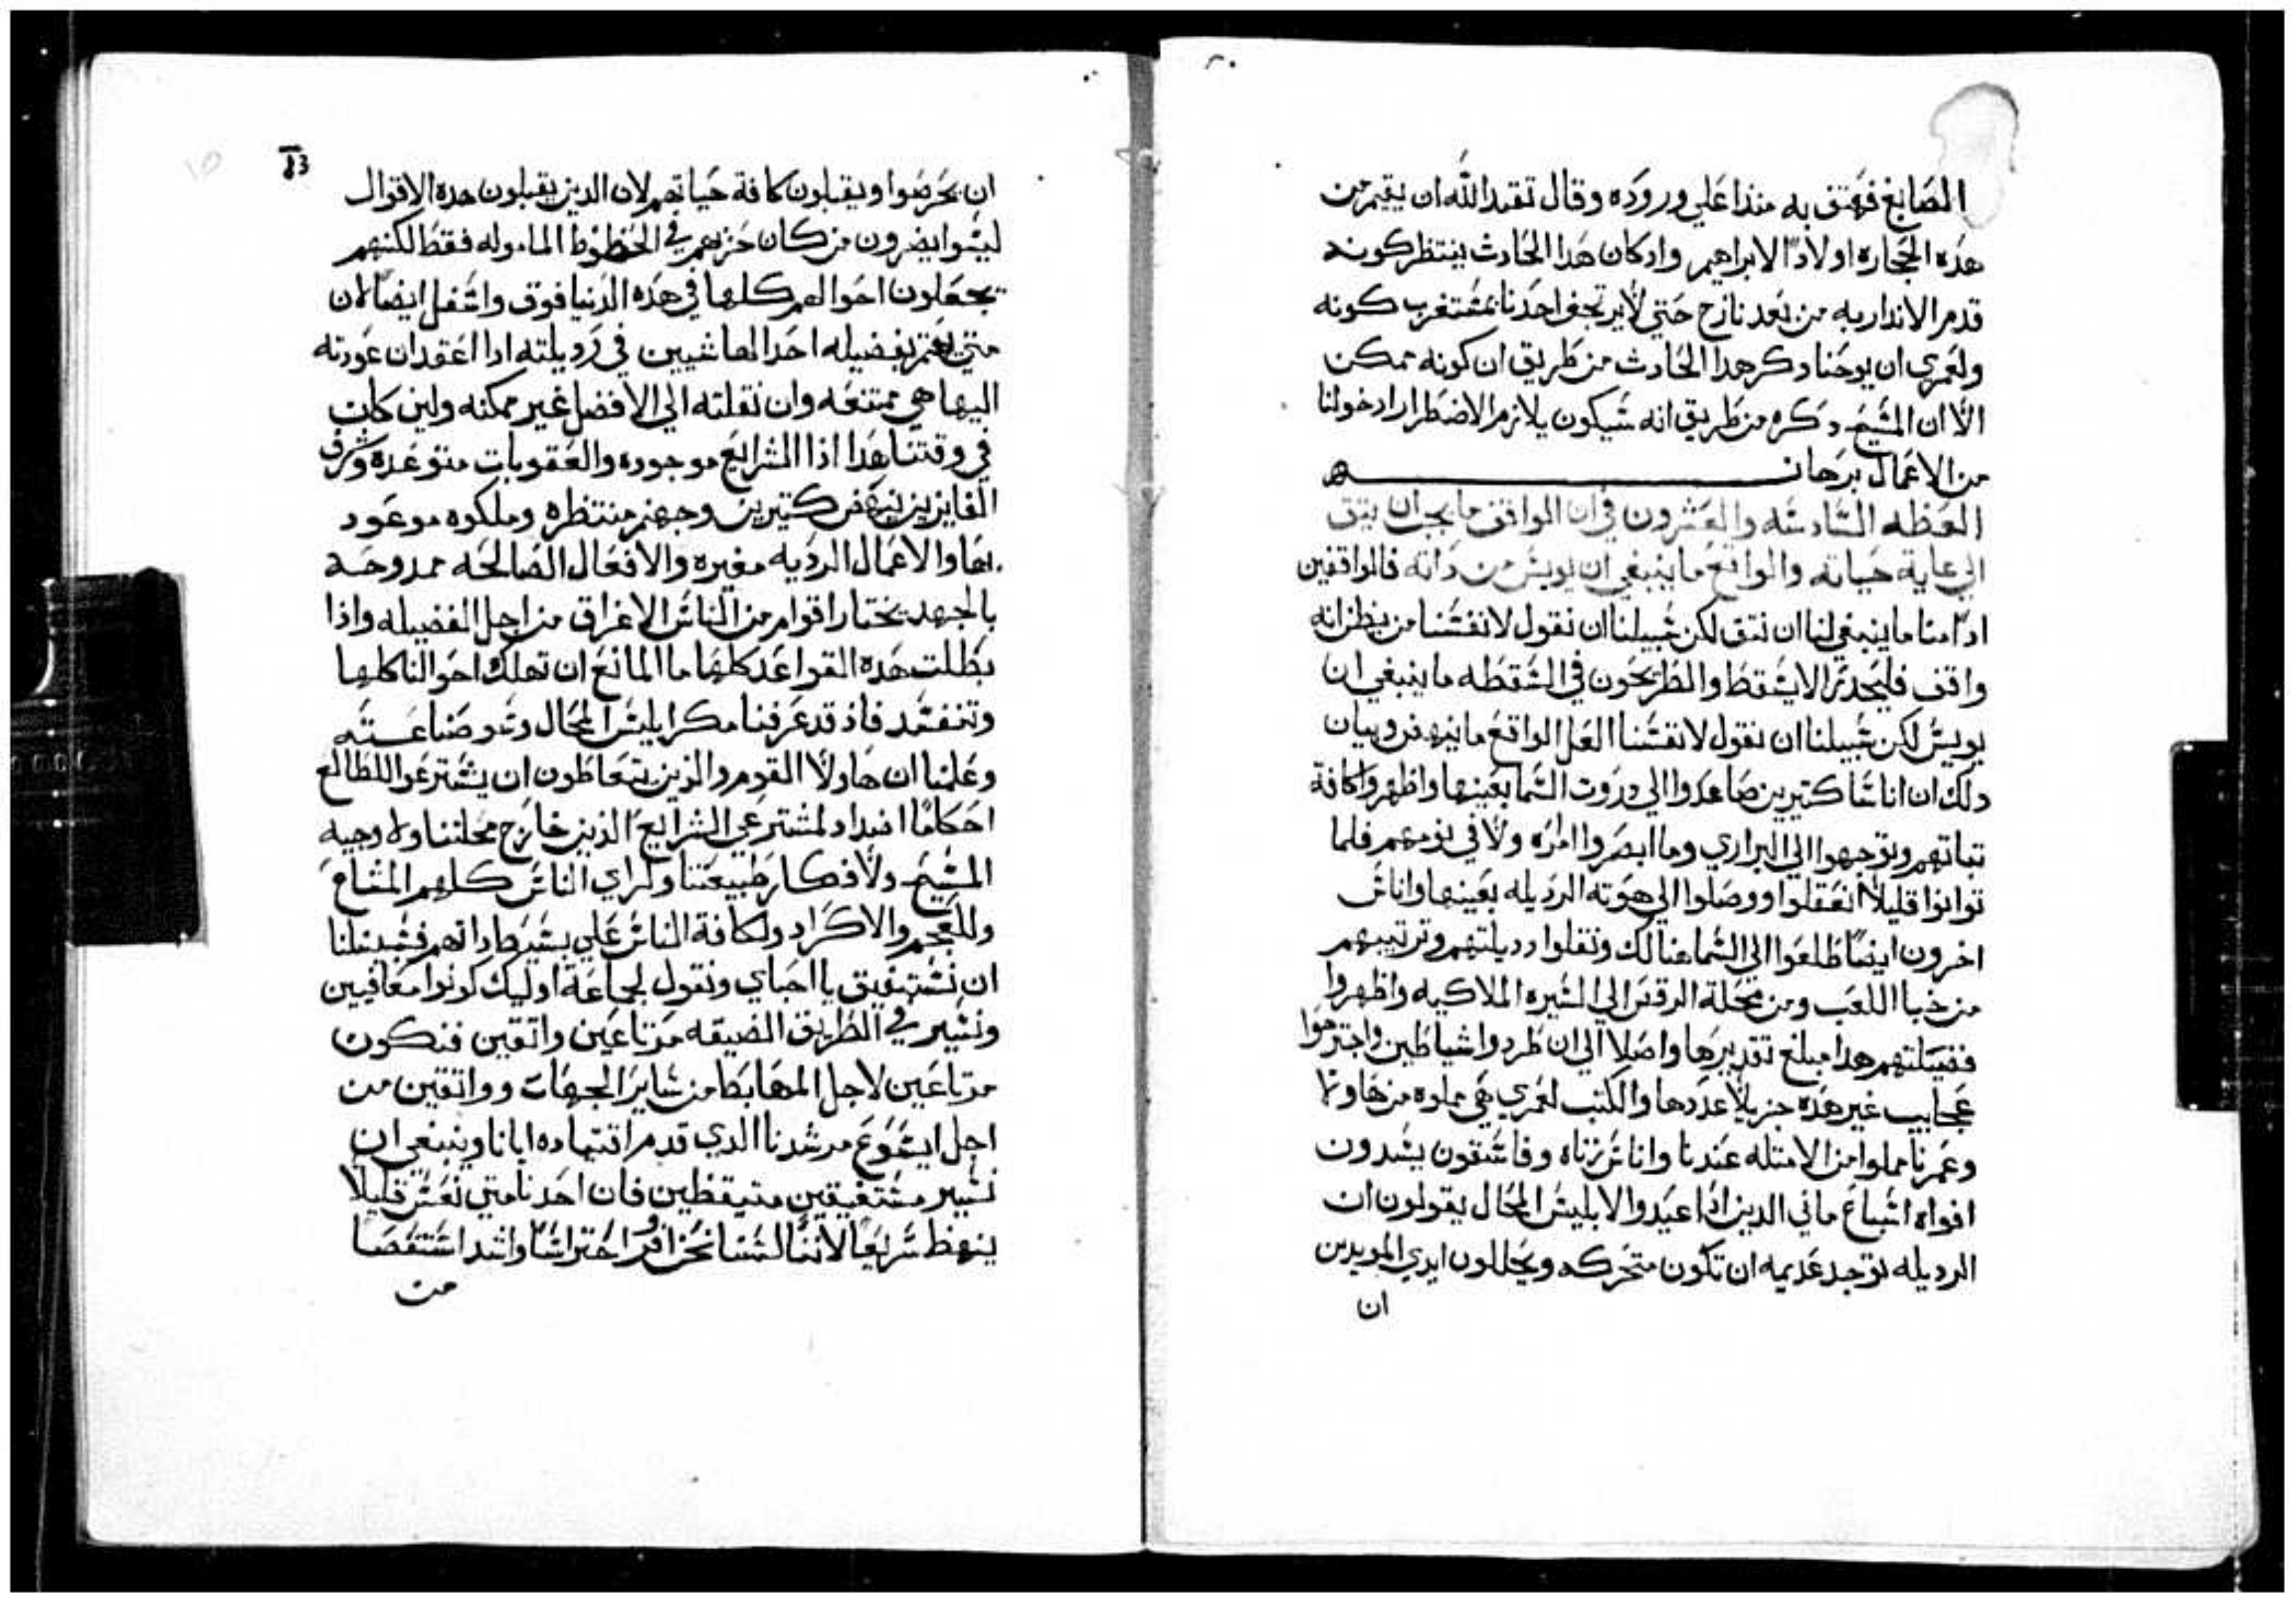 الصابغ فهتف به منذا علي وروده وقال تقدر الله ان يقيم من
هذه الحجاره اولادًا لابراهيم واد كان هدا الحادث ينتظر كونه
قدم الاندار به من بعد نازح حتي لا يرتجف احدنا بمستغرب كونه
ولعمري ان يوحنا دكر هدا الحادث من طريق ان كونه ممكن
الا ان المسيح دكره من طريق انه سيكون يلازم الاضطرار ادخولنا
من الاعمال برهان
العظه السادسه والعشرون في ان الواقف ما يجب ان يتق
الي غاية حياته والواقع ما ينبغي ان يويس من داته فالواقفين
ادًا منا ما ينبغي لنا ان نتق لكن سبيلنا ان نقول لانفسنا من يظن انه
واقف فليحدر لا يسقط والمطريحون في السقطه ما ينبغي ان
يويس لكن سبيلنا ان نقول لانفسنا العل الواقع ما ينهض وبيان
دلك ان اناسًا كتيرين صاعدوا الي دروت السما بعينها واظهروا كافة
تباتهم وتوجهوا الي البراري وما ابصروا امراه ولا في نومهم فلما
توانوا قليلاً انعقلوا ووصلوا الي هوته الرديله بعينها واناس
اخرون ايضًا طلعوا الي السما هنالك ونقلوا رديلتهم وترتيبهم
من خبا اللعب ومن محلة الرقص الي السيره الملاكيه واظهروا
فضيلتهم هدا مبلغ تقديرها واصلا الي ان طردوا شياطين واجترحوا
عجايب غير هده جزيلاً عددها والكتب لعمري هي مملوه من هاولا
وعمرنا مملوا من الامتله عندنا واناس زناه وفاسقون يسدون
افواه اتباع ماني الدين ادا عبدوا لابليس المحال يقولون ان
الرديله توجد عديمه ان تكون متحركه ويحللون ايدي المريدين
ان
83
ان يحرضوا ويقبلون كافة حياتهم لان الدين يقبلون هده الاقوال
ليسوا يضرون من كان حزبهم في الحظوظ الماموله فقط لكنهم
يجعلون احوالهم كلها في هده الدنيا فوق واسفل ايضًا لان
متي يهتم بفضيله احد العايشين في رديلته ادا اعتقد ان عودته
اليها هي ممتنعه وان نقلته الي الافضل غير ممكنه ولين كان
في وقتنا هدا اذا الشرايع موجوده والعقوبات متوعده وشرف
الفايزين ينهض كتيرين وجهنم منتظره وملكوه موعود
بها والاعمال الرديه مغيره والافعال الصالحه ممدوحه
بالجهد يختار اقوام من الناس الاغراق من اجل الفضيله واذا
بطلت هده القواعد كلها ما المانع ان تهلك احوالنا كلها
وتنفسد فاذ قد عرفنا مكر ابليس المحال وسو صناعته
وعلمنا ان هاولا القوم والذين يتعاطون ان يشترعوا للطالع
احكامًا اضداد لمشترعي الشرايع الذين خارج محلتنا ولوحيه
المسيح ولافكار طبيعتنا ولراي الناس كلهم المشاع
وللعجم والاكراد ولكافة الناس علي بسيط داتهم فسبيلنا
ان نستفيق يا احباي ونقول لجماعة اوليك كونوا معافيين
ونسير في الطريق الضيقه مرتاعين واتقين فنكون
مرتاعين لاجل المهابط من ساير الجهات وواتقين من
اجل ايسوع مرشدنا الدي قدم اقتياده ايانا وينبغي ان
نسير مستفيقين متيقظين فان احدنا متي نعس قليلاً
ينهظ سريعًا لاننا لسنا نحن اوفر احتراسًا واشد استقصا
من